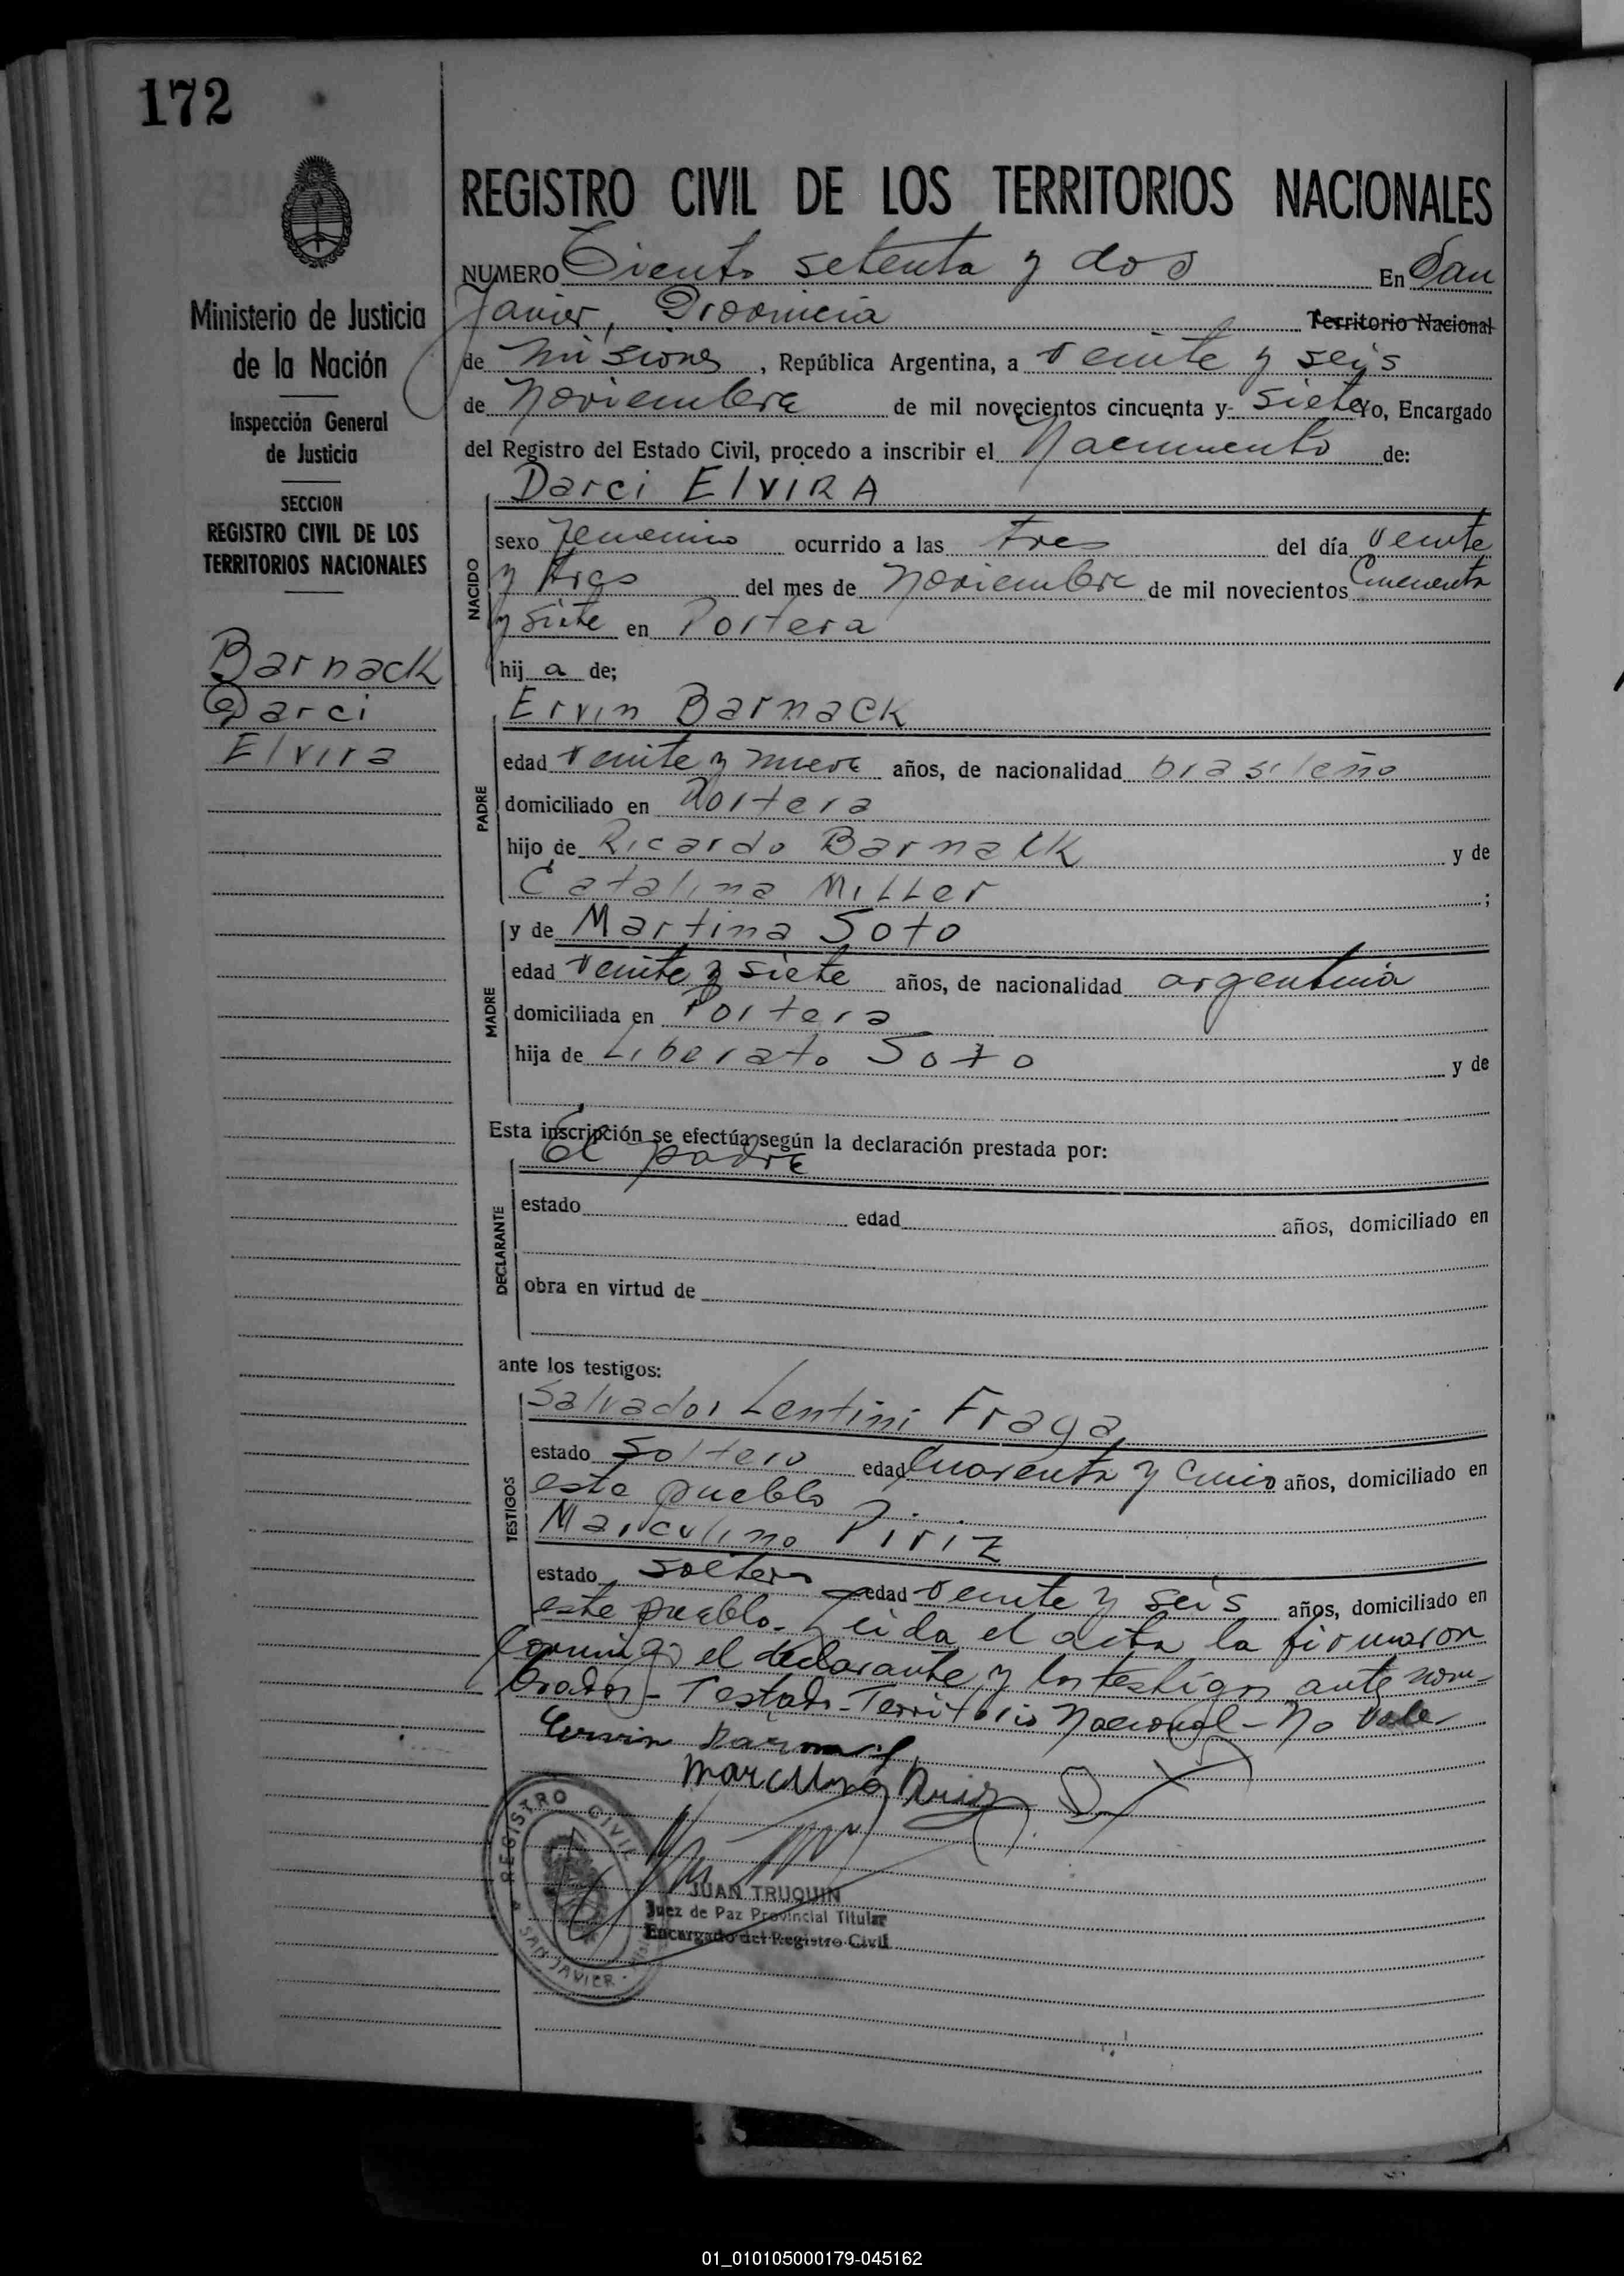 172
Ministerio de Justicia
de la Nación
Inspección General
de Justicia
SECCION
REGISTRO CIVIL DE LOS
TERRITORIOS NACIONALES
Barnack
Darci
Elvira
REGISTRO CIVIL DE LOS TERRITORIOS NACIONALES
NUMERO Ciento setenta y dos En San
Javier, Provincia Territorio Nacional
de Misiones, República Argentina, a veinte y seis
de Noviembre de mil novecientos cincuenta y siete Yo, Encargado
del Registro del Estado Civil, procedo a inscribir el Nacimiento de:
Darci ElVIRA
NACIDO
sexo femenino ocurrido a las tres del día veinte
y tres del mes de Noviembre de mil novecientos Cincuenta
y siete en Portera
hij a de;
Ervin Barnack
PADRE
edad veinte y nueve años, de nacionalidad brasileño
domiciliado en Portera
hijo de Ricardo Barnack y de
Catalina Miller ;
y de Martina Soto
MADRE
edad veinte y siete años, de nacionalidad argentina
domiciliada en Portera
hija de Liberato Soto y de
Esta inscripción se efectúa según la declaración prestada por:
El padre
DECLARANTE
estado edad años, domiciliado en
obra en virtud de
ante los testigos:
Salvador Lentini Fraga
TESTIGOS
estado Soltero edad Cuarenta y Cinco años, domiciliado en
este pueblo
Marculino Piriz
estado soltero edad veinte y seis años, domiciliado en
este pueblo. Leida el acta la firmaron
conmigo el declarante y los testigos ante nom-
brados - Testado - Territorio Nacional - No Vale
Ervin
JUAN TRUQUIN
Juez de Paz Provincial Titular
Encargado del Registro Civil
REGISTRO CIVIL
SAN JAVIER
01_010105000179-045162